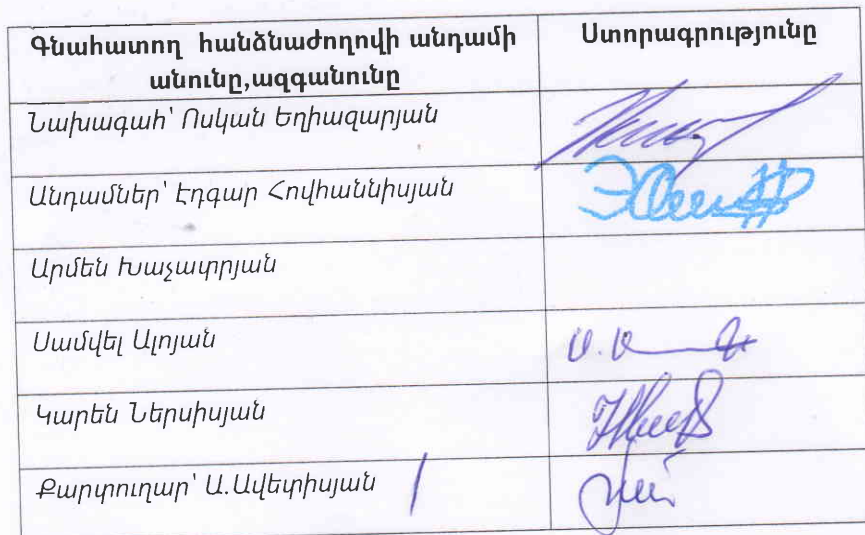 Գնահատող հանձնաժողովի անդամի
անունը,ազգանունը
Ստորագրությունը
Նախագահ՝ Ոսկան Եղիազարյան
Անդամներ՝ Էդգար Հովհաննիսյան
Արմեն Խաչատրյան
Սամվել Ալոյան
Կարեն Ներսիսյան
Քարտուղար՝ Ա.Ավետիսյան